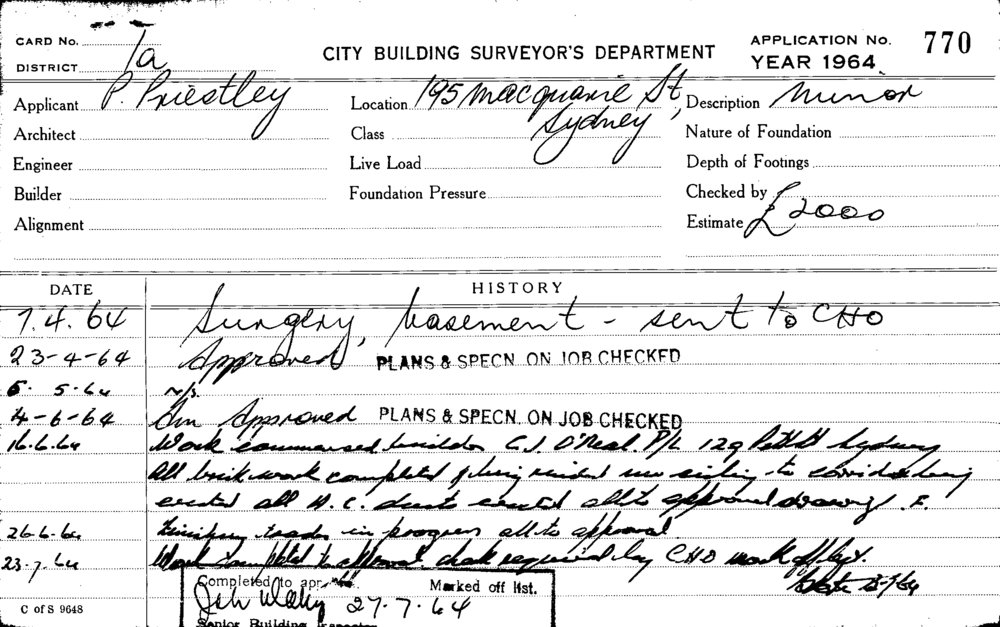 CARD No.
DISTRICT 1a
CITY BUILDING SURVEYOR'S DEPARTMENT
APPLICATION No. 770
YEAR 1964
Applicant P. Priestley
Location 195 Macquarie St, Sydney
Description Minor
Architect
Class
Nature of Foundation
Engineer
Live Load
Depth of Footings
Builder
Foundation Pressure
Checked by
Alignment
Estimate £2000
DATE HISTORY
7.4.64 Surgery, basement - sent to CHO
23-4-64 Approved PLANS & SPECN. ON JOB CHECKED
5. 5.64 N/S.
4-6-64 Am Approved PLANS & SPECN. ON JOB CHECKED
16.6.64 Work commenced builder C.J. O'Neal P/L 129 Pitt St Sydney
All brickwork completed & being new ceiling to corridor being
erected all A.C. ducts erected all to approved drawing
26.6.64 trades in progress all to approval
23.7.64 Work completed to approval check required by CHO mark off list.
Completed to Marked off list.
27.7.64
Senior Building Inspector
C of S 9648